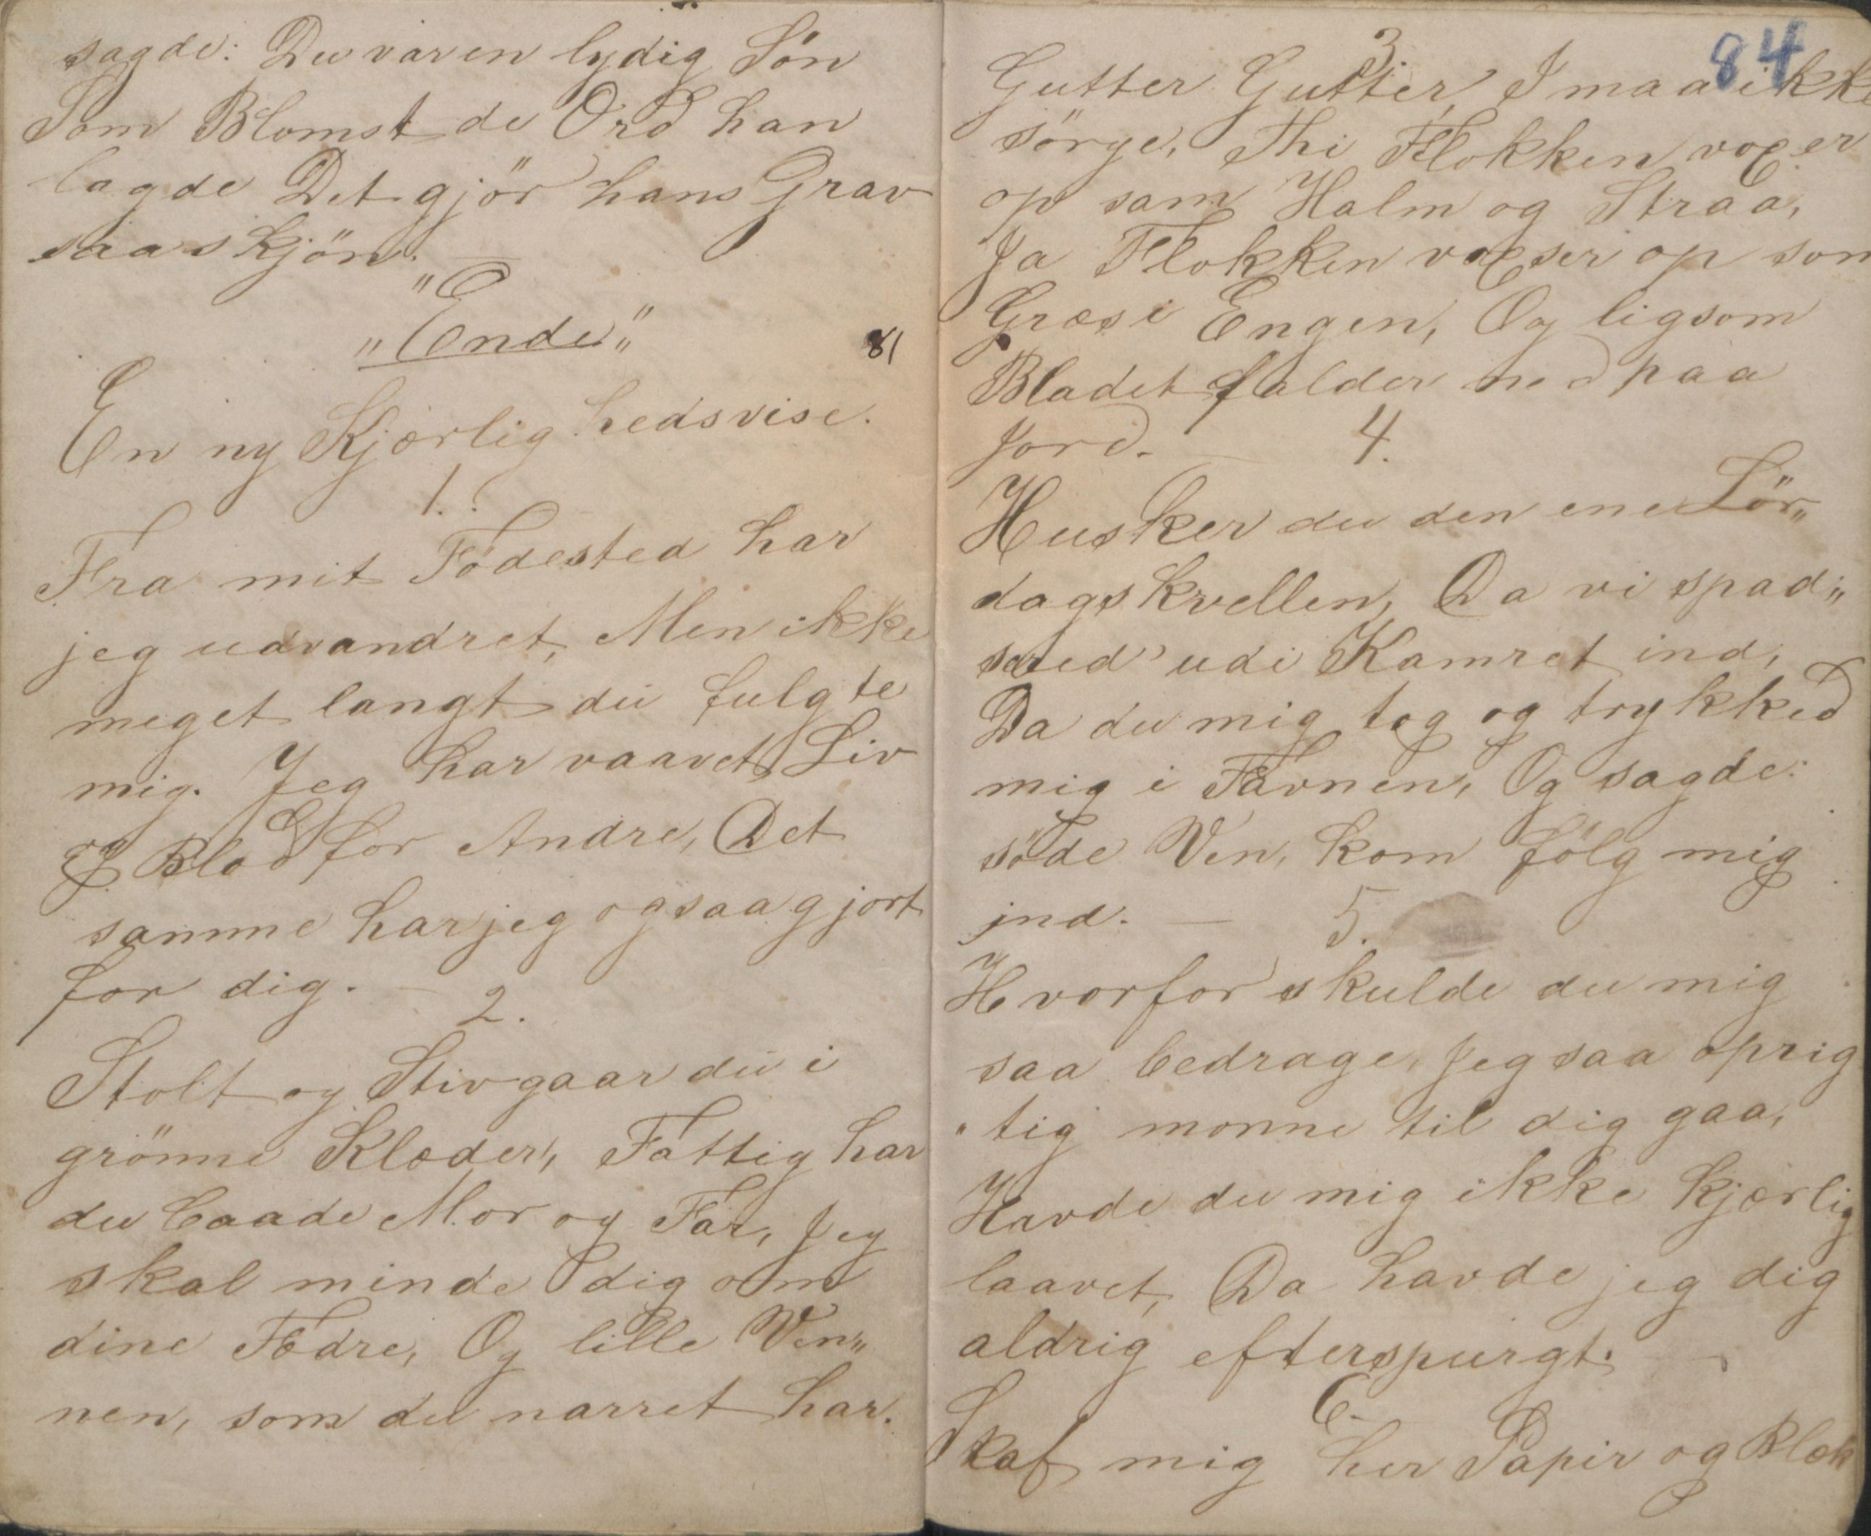 sagde: Du var en lydig Sön
Som Blomst de Ord han
lagde Det gjör hans Grav
saa skjön. —
"Ende"
81
En ny Kjærlighedsvise.
1.
Fra mit Födested har
jeg udvandret, Men ikke
meget langt du fulgte
mig. Jeg har vaavet Liv
og Blod for Andre, Det
samme har jeg ogsaa gjort
for dig. —
2.
Stolt og Stiv gaar du i
grönne Klæder, Fattig har
du baade Mor og Far, Jeg
skal minde dig om
dine Fædre, Og lille Ven„
nen, som du narret har.
84
3.
Gutter Gutter, I maa ikke
sörge, Thi Flokken voxer
op som Halm og Straa,
Ja Flokken voxser op som
Græs i Engen, Og ligsom
Bladet falder ned paa
Jord. —
4.
Husker du den ene Lör„
dagskvellen, Da vi spad„
sered' udi Kamret ind,
Da du mig tog og trykked
mig i Favnen, Og sagde:
söde Ven, kom fölg mig
ind. —
5.
Hvorfor skulde du mig
saa bedrage, Jeg saa oprig
„tig monne til dig gaa,
Havde du mig ikke kjærlig
laavet, Da havde jeg dig
aldrig efterspurgt. —
6.
Skaf mig her Papir og Blæk